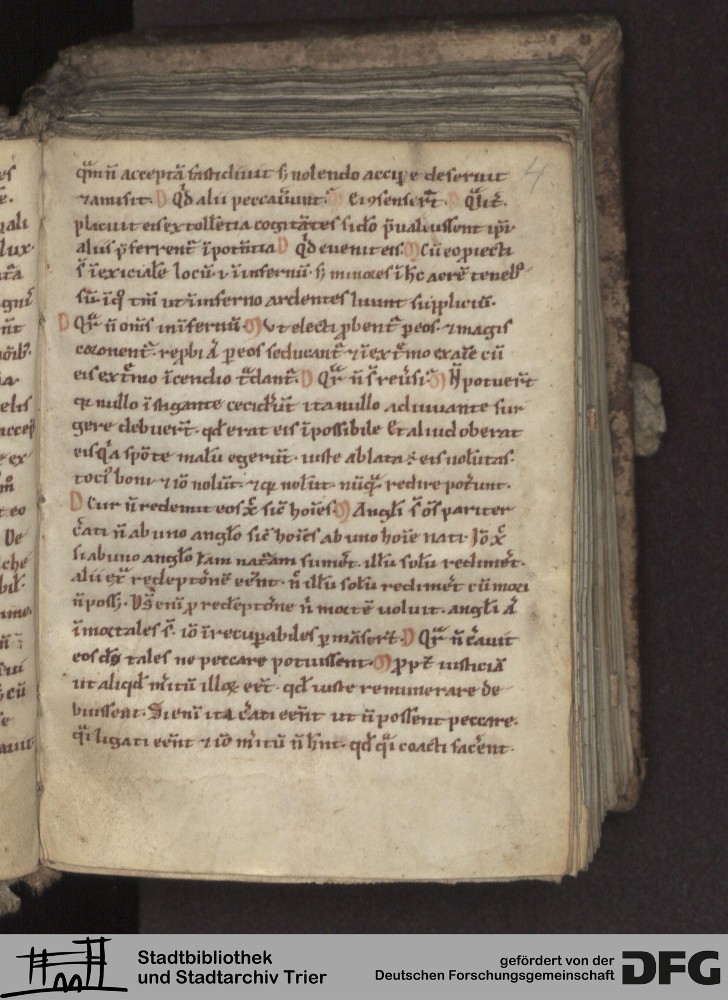 4
qm̄ n̄ acceptā fastidiuit s; nolendo accipe deseruit
⁊ amisit. D Qd̄ alii peccauūnt. M Ei ꝯsensert̄. D Qlit̄.
placuit eis extollētia cogitātes si dō p̄ualuissent ip̄i
aliis p̄ferrent̄ ī potētia D Qd̄ euenit eis. M Cū eo piecti
s̄ ī exiciale locū. ⁊ ī infernū. s; minores ī hc̄ aerē teneb̄
sū. ī q tm̄ ut ī inferno ardentes luunt suppliciū.
D Qr̄ n̄ om̄s in īfernū. M Vt electi ꝑbent̄ ꝑ eos. ⁊ magis
coronent̄. rep̄bi ā ꝑ eos seducant̄ ⁊ ī ext̄mo exam̄e cū
eis ext̄mo īcendio t̄dant̄. D Qr̄ n̄ s̄ reūsi. M N̄ potuer̄t
qꝛ nullo īstigante cecider̄t ita nullo adiuuante sur
gere debuer̄t. qd̄ erat eis īpossibile Et aliud oberat
eis qa spōte malū egerūt. iuste ablata ē eis uolūtas.
toci boni ⁊ iō nolūt. ⁊ qꝛ nolūt. nūq redire poter̄nt.
D Cur n̄ redemit eos x̄ sic̄ hoīes. M Angl̄i s̄ ōs pariter
c̄ati n̄ ab uno anglo sic̄ hoīes ab uno hoīe nati. Iō x̄
si ab uno anglo iam natām sumēt. illū solū redimēt.
alii ext̄ redēptōnē eēnt. n̄ illū solū redimēt cū mori
n̄ poss;. Ds̄ enī p redēptōne n̄ mortē uoluit. angl̄i ā
īmortales s̄. iō irrecupabiles pmāsert̄. D Qr̄ n̄ c̄auit
eos ds̄ tales ne peccare potuissent. M ꝓpt̄ iusticiā
ut aliqd̄ mītū illoꝝ eēt. qd̄ iuste remunerare de
buissent. Si enī ita c̄ati eēnt ut n̄ possent peccare.
qi ligati eēnt ⁊ iō mītū n̄ hn̄t. qd̄ qi coacti facēnt.
Stadtbibliothek
und Stadtarchiv Trier
gefördert von der
Deutschen Forschungsgemeinschaft
DFG